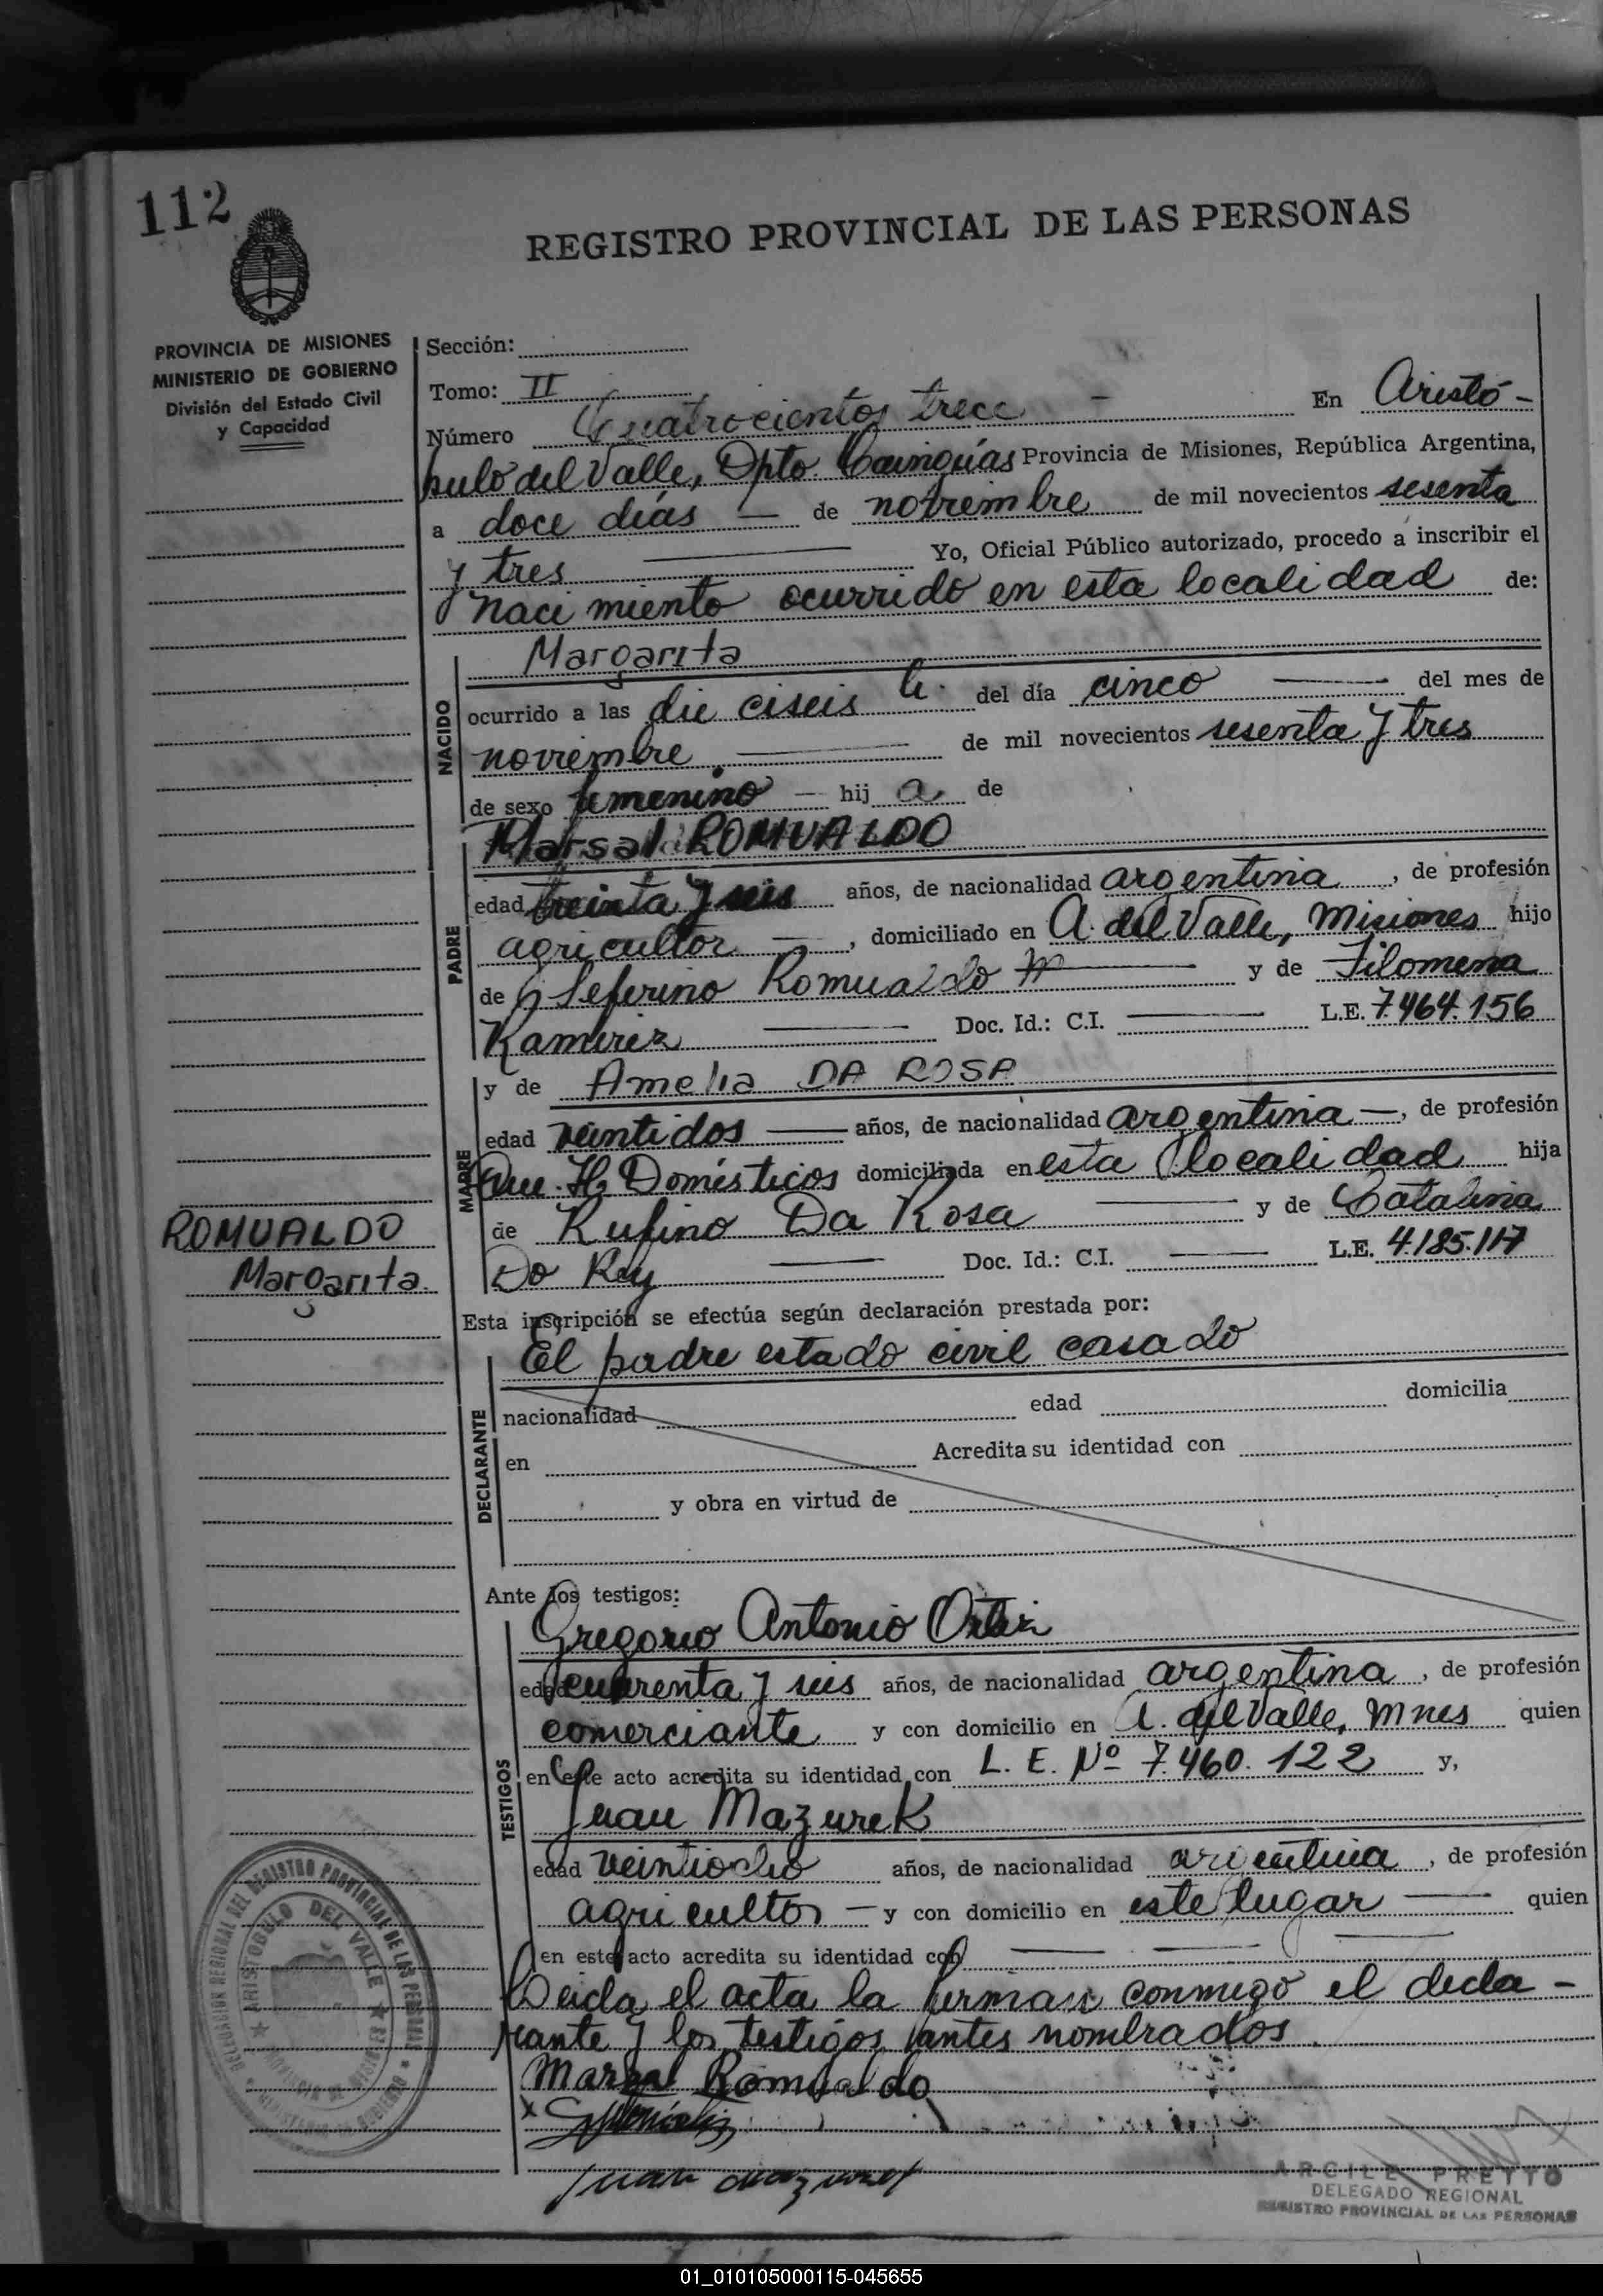 112
REGISTRO PROVINCIAL DE LAS PERSONAS
PROVINCIA DE MISIONES
MINISTERIO DE GOBIERNO
División del Estado Civil
y Capacidad
Sección:
Tomo: II
Número Cuatrocientos trece - En Aristó-
bulo del Valle, Dpto. Cainguás Provincia de Misiones, República Argentina,
a doce días — de noviembre de mil novecientos sesenta
y tres — Yo, Oficial Público autorizado, procedo a inscribir el
nacimiento ocurrido en esta localidad de:
Margarita
NACIDO
ocurrido a las dieciseis h. del día cinco — del mes de
noviembre — de mil novecientos sesenta y tres
de sexo femenino — hij a de
PADRE
Marsal ROMUALDO
edad treinta y seis años, de nacionalidad argentina, de profesión
agricultor —, domiciliado en A. del Valle, Misiones hijo
de Seferino Romualdo — y de Filomena
Ramirez — Doc. Id.: C.I. — L.E. 7.464.156
MADRE
y de Amelia DA ROSA
edad veintidos — años, de nacionalidad argentina —, de profesión
Que. H. Domésticos domiciliada en esta localidad hija
de Rufino Da Rosa — y de Catalina
Do Rey — Doc. Id.: C.I. — L.E. 4.185.117
ROMUALDO
Margarita.
Esta inscripción se efectúa según declaración prestada por:
El padre estado civil casado
DECLARANTE
nacionalidad edad domicilia
en Acredita su identidad con
y obra en virtud de
Ante los testigos:
TESTIGOS
Gregorio Antonio Ortiz
edad cuarenta y seis años, de nacionalidad argentina, de profesión
comerciante y con domicilio en A. del Valle, Mnes quien
en este acto acredita su identidad con L. E. Nº 7.460.122 y,
Juan Mazurek
edad veintiocho años, de nacionalidad argentina, de profesión
agricultor — y con domicilio en este lugar — quien
en este acto acredita su identidad con — — —
Leida el acta la firman conmigo el decla-
rante y los testigos antes nombrados.
Marsal Romualdo
Juan Mazurek
DELEGACION REGIONAL DEL REGISTRO PROVINCIAL DE LAS PERSONAS
ARISTOBULO DEL VALLE
ARCILE PRETTO
DELEGADO REGIONAL
REGISTRO PROVINCIAL DE LAS PERSONAS
01_010105000115-045655